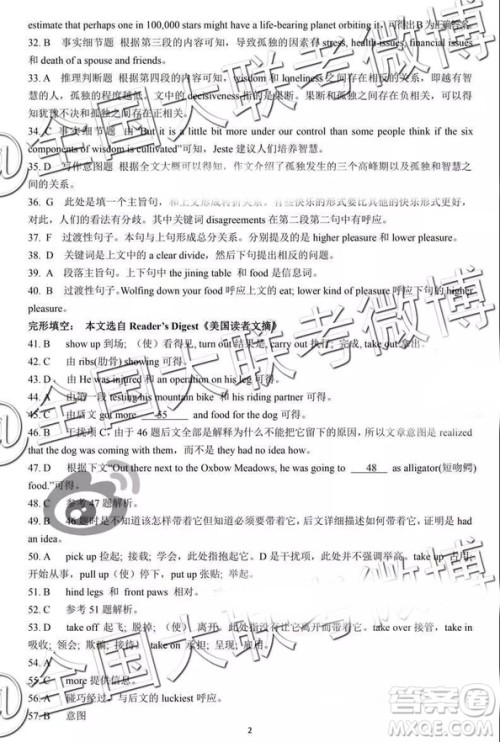 estimate that perhaps one in 100,000 stars might have a life-bearing planet orbiting it. 可得出B为正确答案
32. B 事实细节题 根据第三段的内容可知，导致孤独的因素有 stress, health issues, financial issues
and death of a spouse and friends.
33. A 推理判断题 根据第四段的内容可知，wisdom 和 loneliness 之间存在反相关的关系，即越有智
慧的人，孤独程度越低。文中的 decisiveness 指的是果断。果断和孤独之间存在负相关，因此可得
知犹豫不决和孤独存在正相关。
34. C 事实细节题 由"But it is a little bit more under our control than some people think if the six
components of wisdom is cultivated"可知，Jeste 建议人们培养智慧。
35. D 写作意图题 根据全文大概可以得知，作文介绍了孤独发生的三个高峰期以及孤独和智慧之
间的关系。
36. G 此处是填一个主旨句，和上文形成转折关系。有些快乐的形式要比其他快乐的形式更好，
对此，人们的看法有分歧。其中关键词 disagreements 在第二段第二句中有呼应。
37. F 过渡性句子。本句与上句形成总分关系，分别提到的是 higher pleasure 和 lower pleasure.
38. D 关键词是上文中的 a clear divide，然后下句中提到 higher and lower pleasures.
39. A 段落主旨句。上下句中 the jining table 和 food 是信息词。
40. B 过渡性句子。Wolfing down your food 呼应上文的 eat, lower pleasure 呼应 higher
pleasure.
完形填空： 本文选自 Reader's Digest《美国读者文摘》
41. B show up 到场; （使）看得见, turn out 结果是, carry out 执行; 完成, take out 拿出.
42. C 由 ribs(肋骨) showing 可得
43. D 由 He was injured and an operation on his leg 可得.
44. A 由第一段 testing his mountain bike 和 his riding partner 可得.
45. C 由后文 got more 55 and food for the dog 可得.
46. B 干扰项 C；由 46 题后文全部是解释为什么不能把它带回家的原因, 所以文章意图是 realized
that the dog was coming with them, after all they had no idea how.
47. D 根据下文"Out there next to the Oxbow Meadows, he was going to 48 as alligator(短吻鳄)
food."可得。
48. C 参考 47 题解析。
49. B 46 题时是不知道该怎样带着它但知道要带着它，后文则是想到办法带着它，所以呼应 had
an idea.
50. A pick up 捡起; 接载; 学会, 此处意为抱起它。D 是干扰项，此处并不强调举高。take up 占用;
开始从事, pull up（使）停下, put up 张贴; 举起。
51. B hind legs 和 front paws 相对.
52. C 参考 51 题解析。
53. D take off 起飞; 脱掉; （使）离开。此处意为离开。take over 接管, take in
吸收; 领会; 欺骗; 接待; take on 承担; 呈现; 雇用.
54. A
55. C more 提供信息.
56. A 碰巧经过，与后文的 luckiest 呼应。
57. B 意图
2
@全国大联考微博
@全国大联考微博
答案圈
MXQE.COM